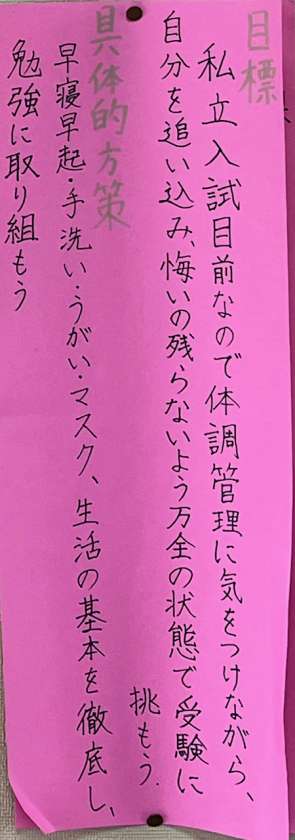 目標
私立入試目前なので体調管理に気をつけながら、
自分を追い込み、悔いの残らないよう万全の状態で受験に
挑もう.
具体的方策
早寝早起・手洗い・うがい・マスク、生活の基本を徹底し、
勉強に取り組もう